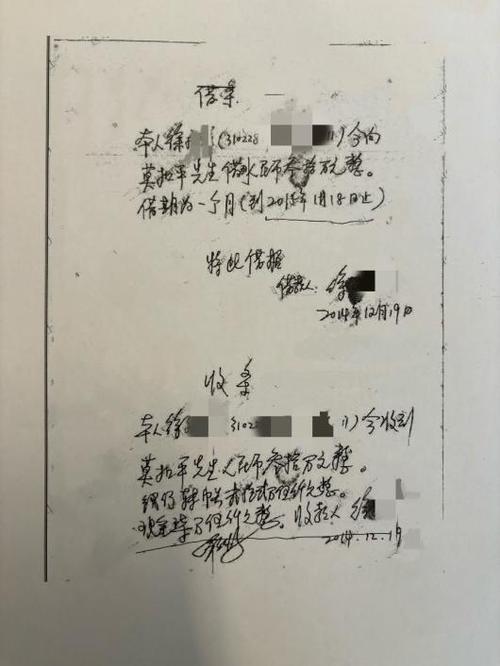 借条
本人徐(310228 11)今向
莫拉平先生借人民币叁拾万元整。
借期为一个月(到2015年1月18日止)
特此借据
借款人:徐
2014年12月19日
收条
本人徐 310228 11)今收到
莫拉平先生人民币叁拾万元整。
银行转帐 万 仟元整。
现金 万 仟元整。收款人 徐
2014.12.19